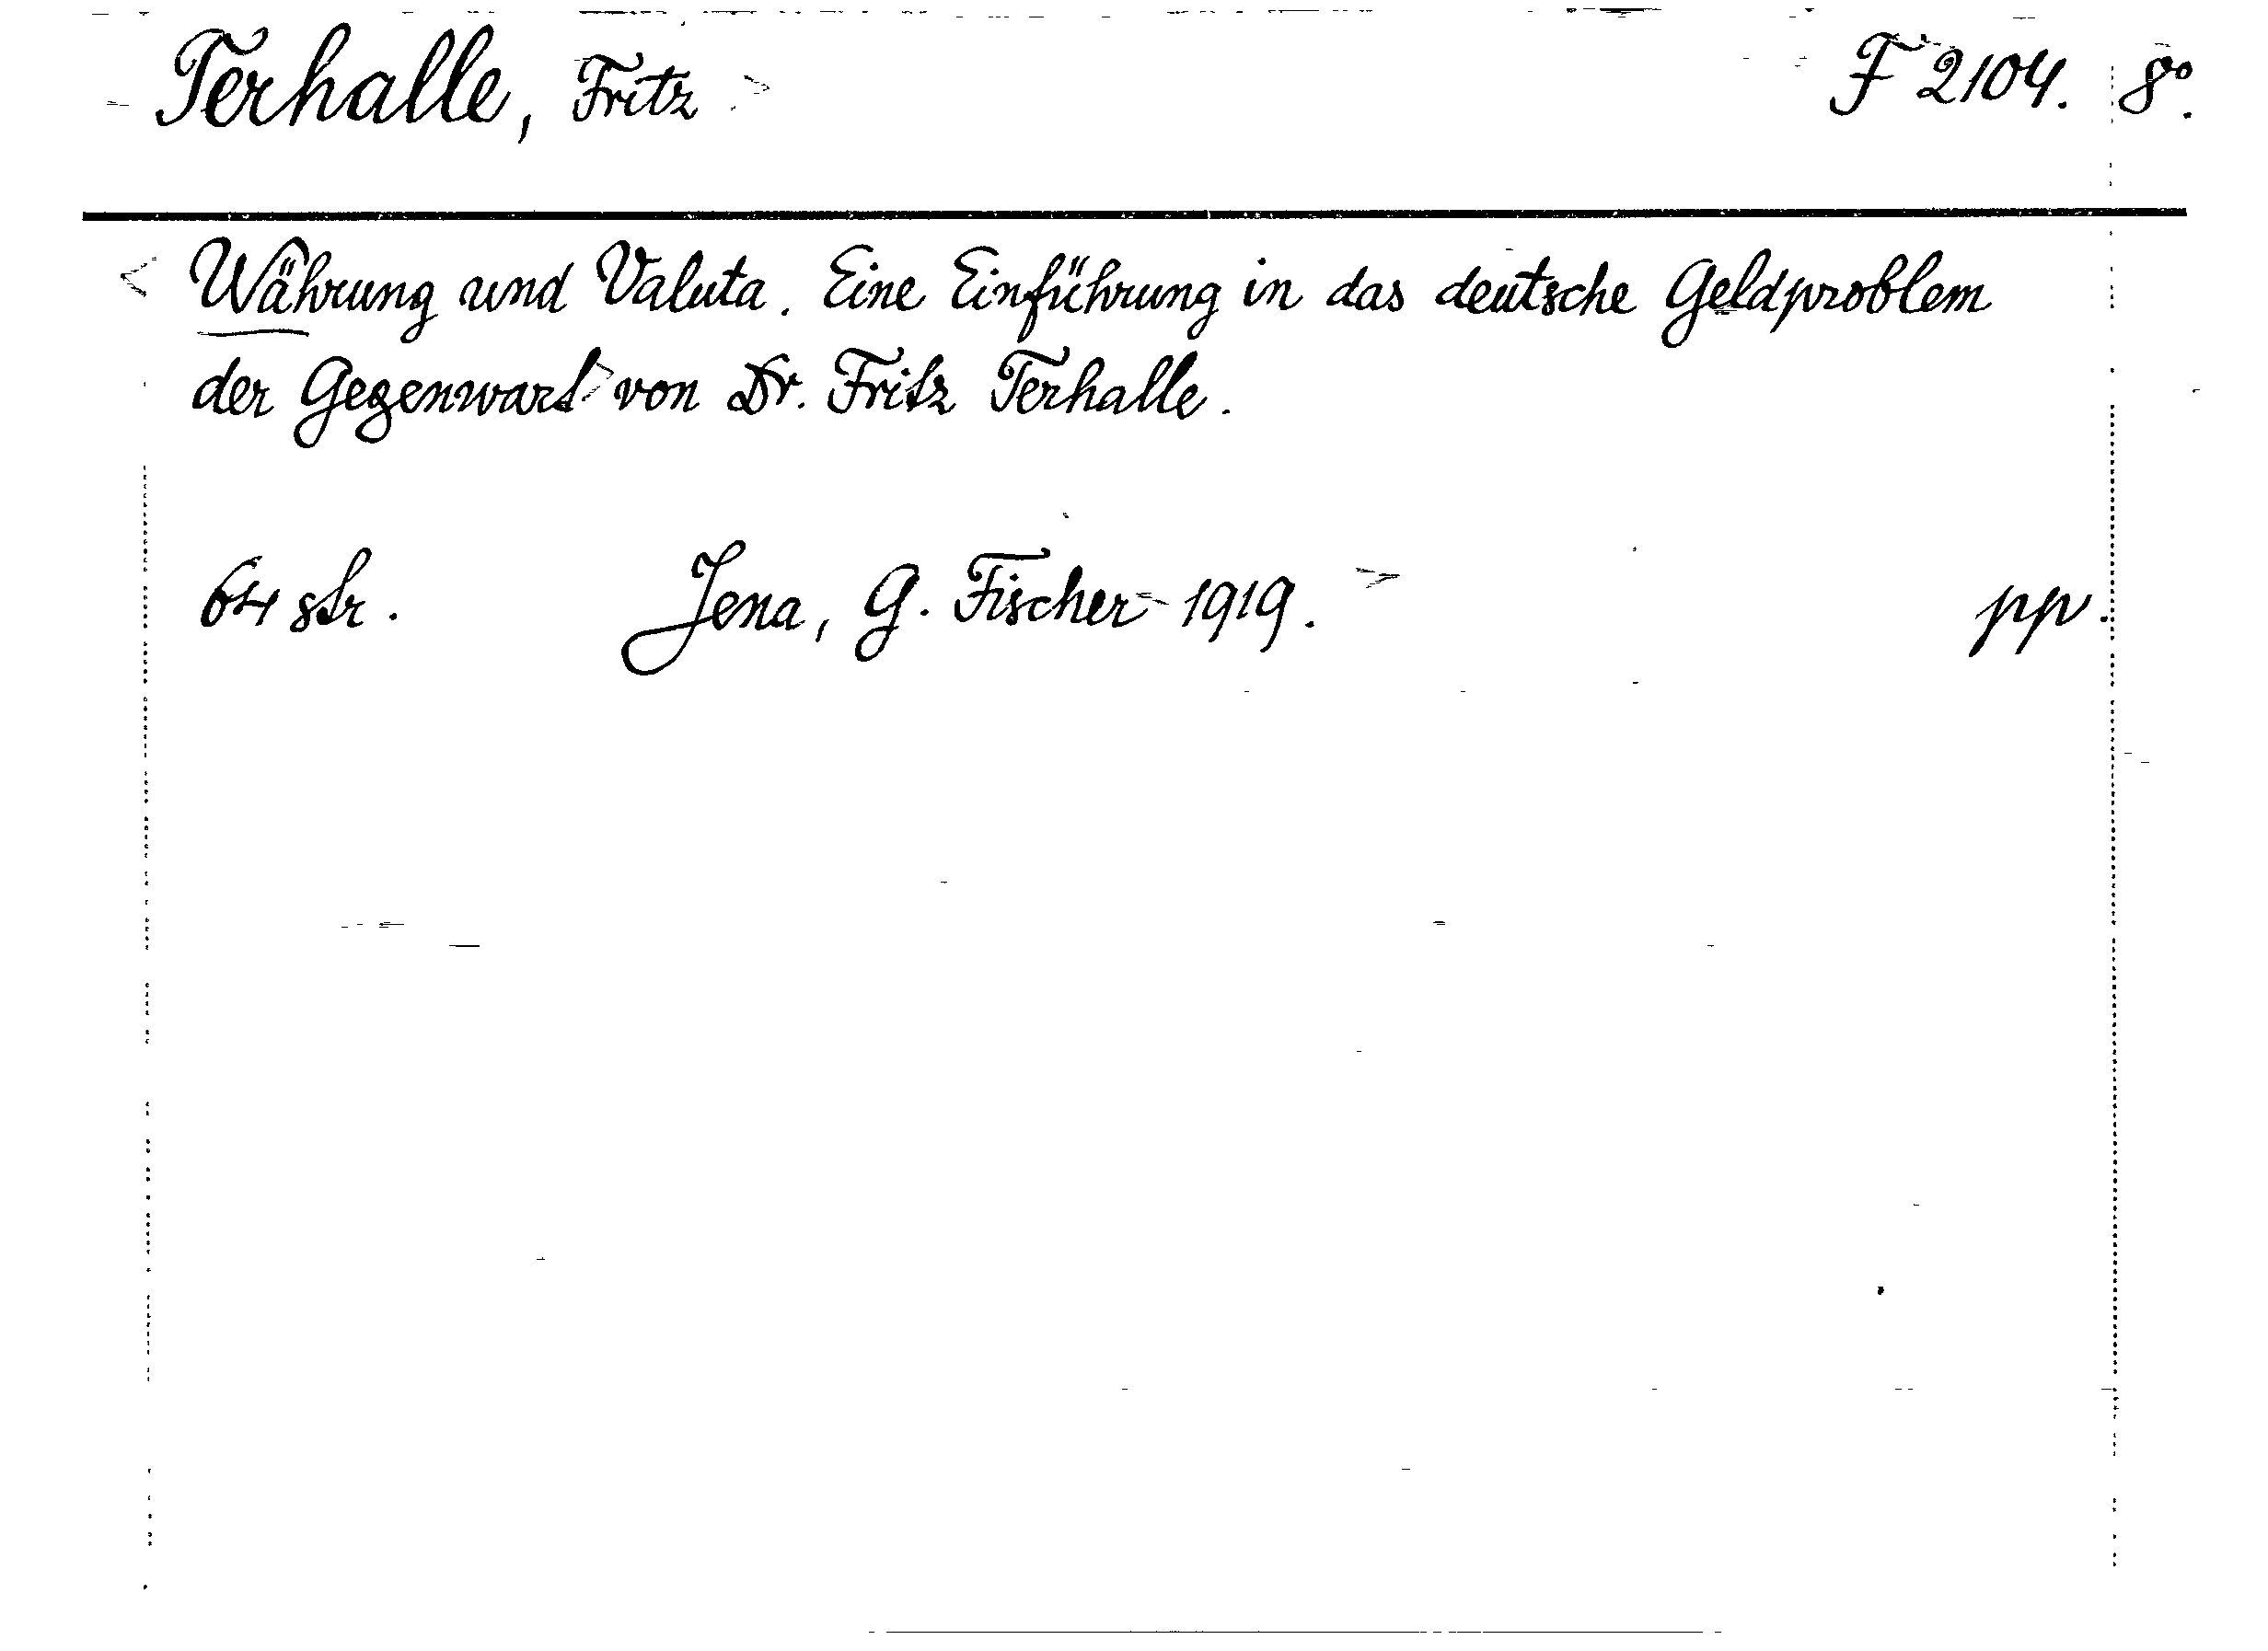 Terhalle, Fritz > F 2104. 8º.
< Währung und Valuta. Eine Einführung in das deutsche Geldproblem
der Gegenwart > von Dr. Fritz Terhalle.
64 str. Jena, G. Fischer - 1919. > pp.